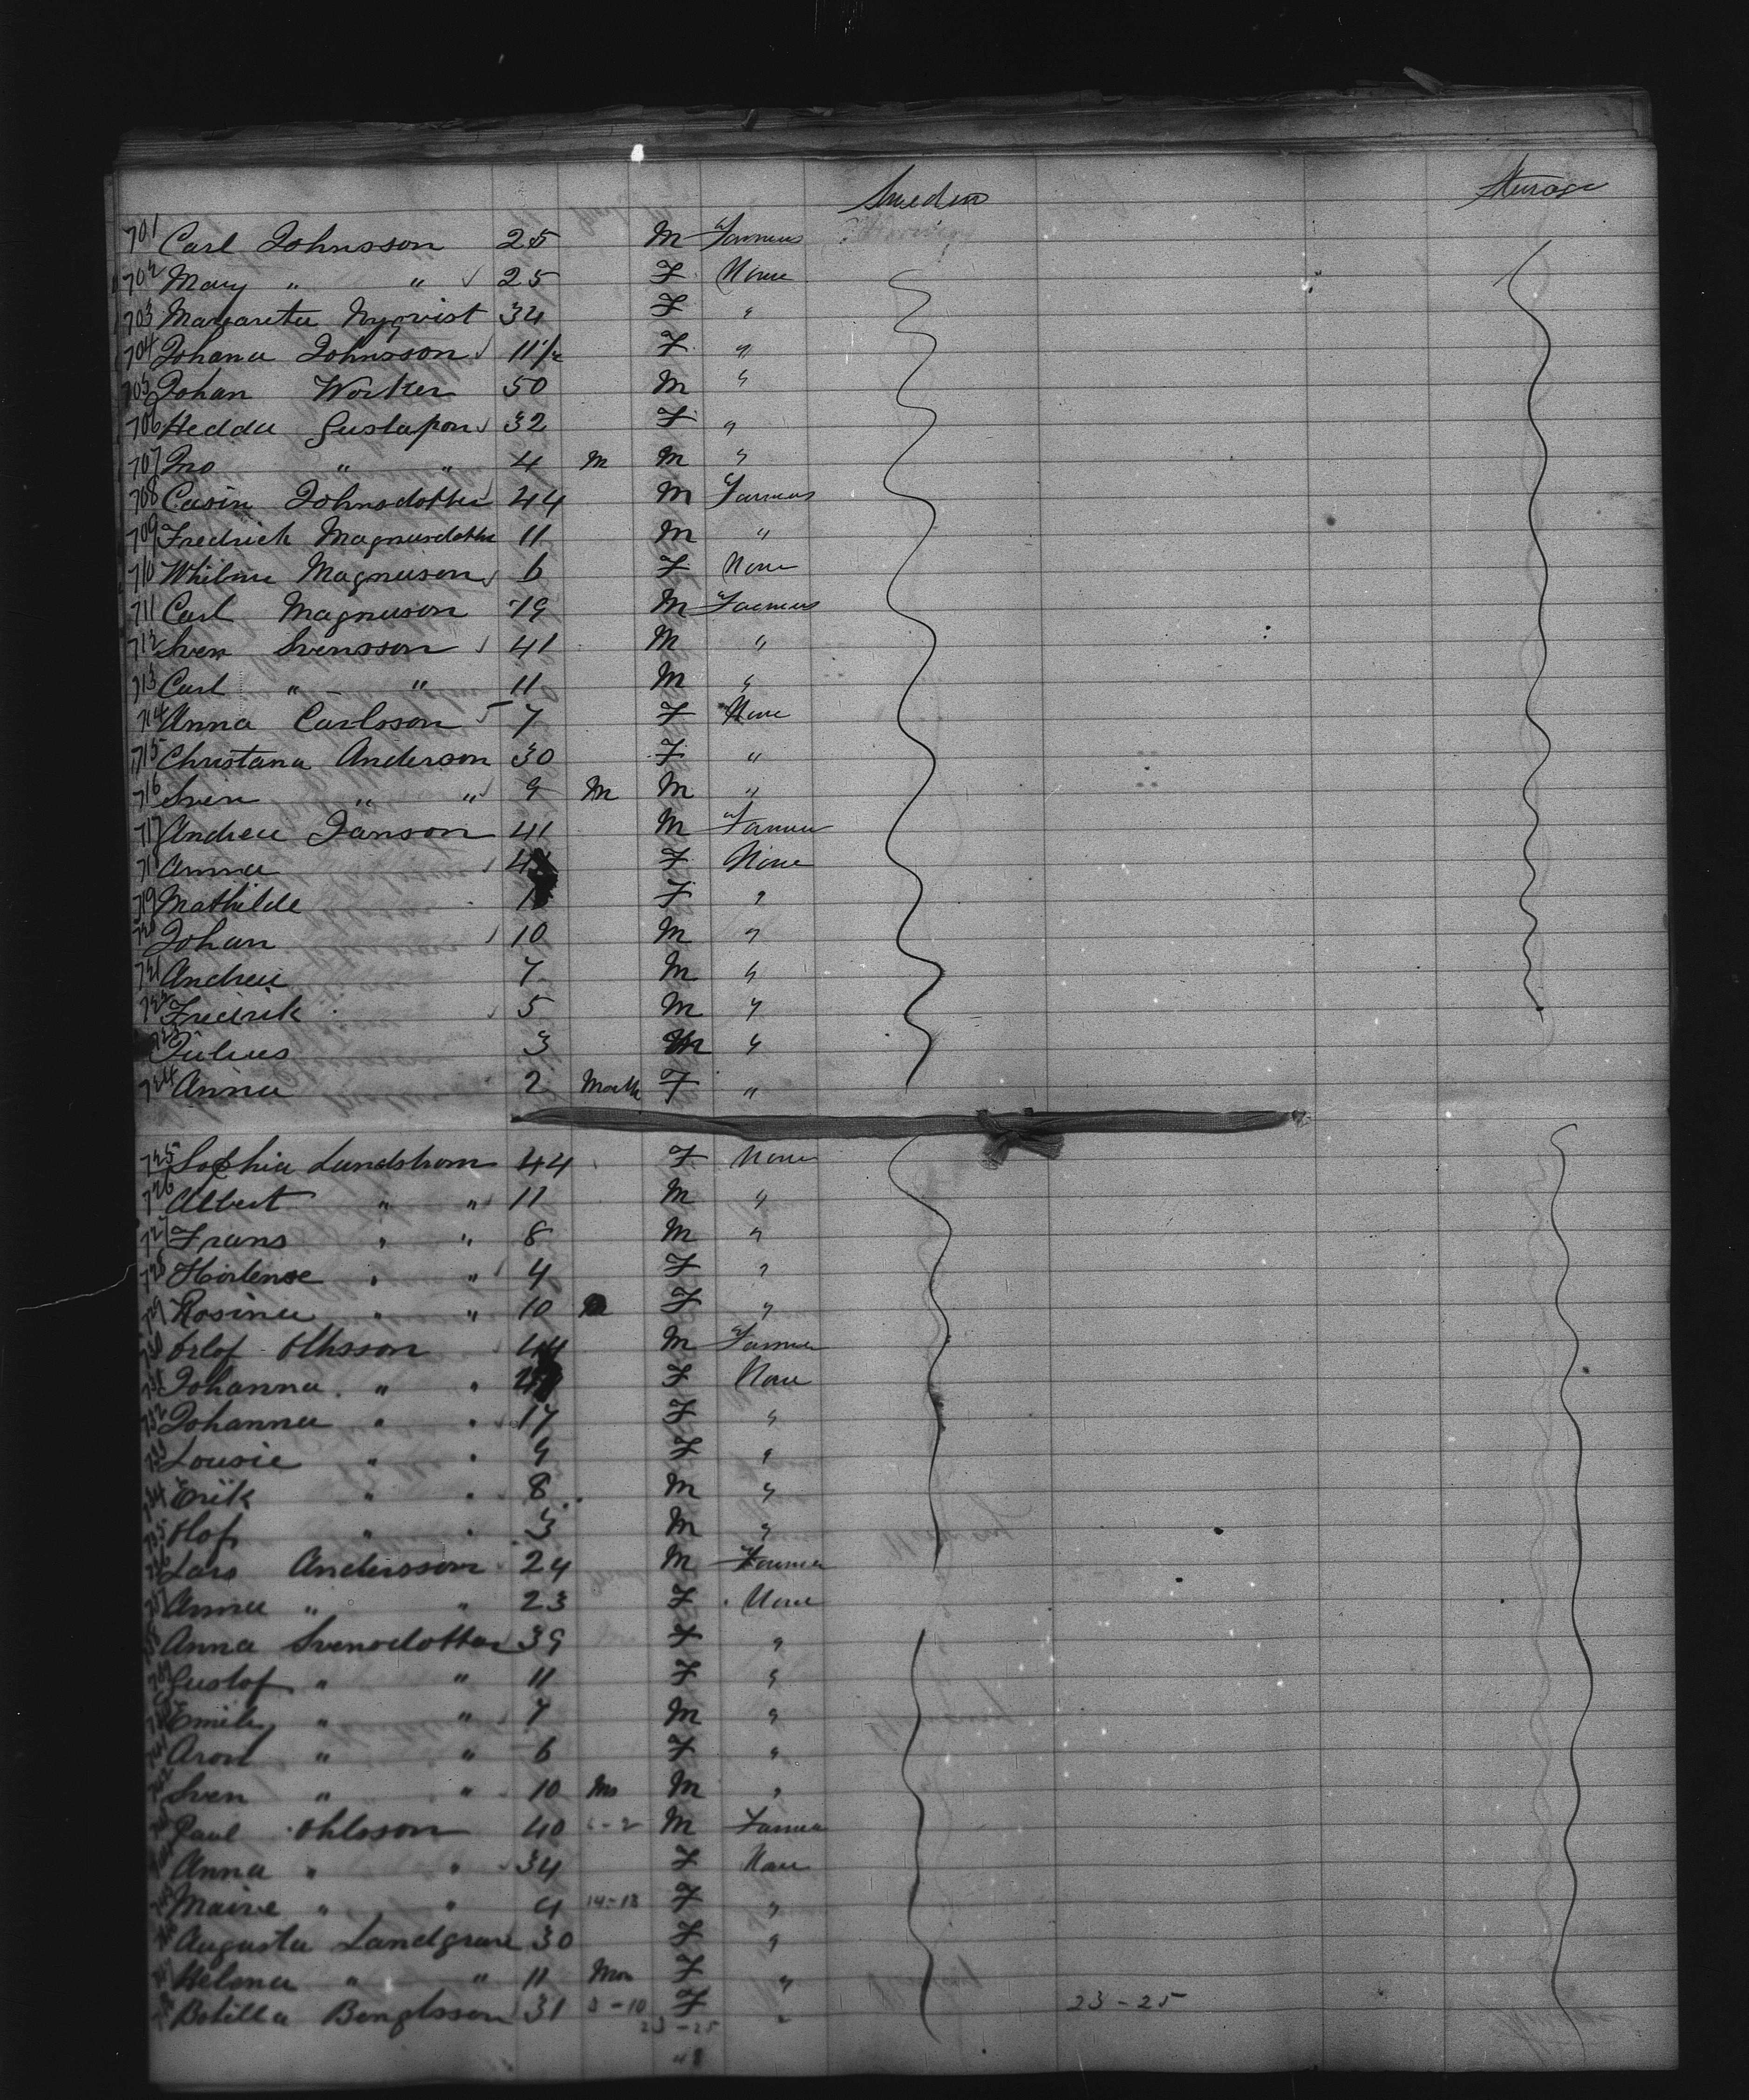 Sweden Steerage
701 Carl Johnsson 25 M Farmers
702 Mary " " 25 F None
703 Margareta Nyqvist 34 F "
704 Johana Johnsson 11 1/2 F "
705 Johan Worker 50 M "
706 Hedda Gustafson 32 F "
707 Jno " " 4 M M "
708 Casin Johnsdotter 44 M Farmers
709 Fredrick Magnusdotter 11 M "
710 Whilmi Magnuson 6 F None
711 Carl Magnuson 19 M Farmers
712 Sven Svensson 41 M "
713 Carl " " 11 M "
714 Anna Carlsson 7 F None
715 Christana Anderson 30 F "
716 Sven " " 9 M M "
717 Andreu Janson 41 M Farmer
718 Anna F None
719 Mathilde F "
720 Johan 10 M "
721 Andreu 7 M "
722 Fredrik 5 M "
723 Julius 3 M "
724 Anna 2 Month F "
725 Sophia Lundstrom 44 F None
726 Albert " " 11 M "
727 Frans " " 8 M "
728 Hortense " " 4 F "
729 Rosina " " 10 F "
730 Orlof Olhsson 44 M Farmer
731 Johanna " " F None
732 Johanna " " 17 F "
733 Lousie " " 9 F "
734 Erik " " 8 M "
735 Olof " " 3 M "
736 Lars Andersson 24 M Farmer
737 Anna " " 23 F None
Anna Svensdotter 39 F "
739 Gustof " " 11 F "
Emily " " 7 M "
741 Aron " " 6 F "
742 Sven " " 10 Mo M "
Paul Ohlsson 40 M Farmer
Anna " " 34 F None
Maine " " 4 14-18 F "
Augusta Landgrave 30 F "
Helena " " 11 Mon F "
Botilla Bengtsson 31 3-10 F " 23-25
23-25
48